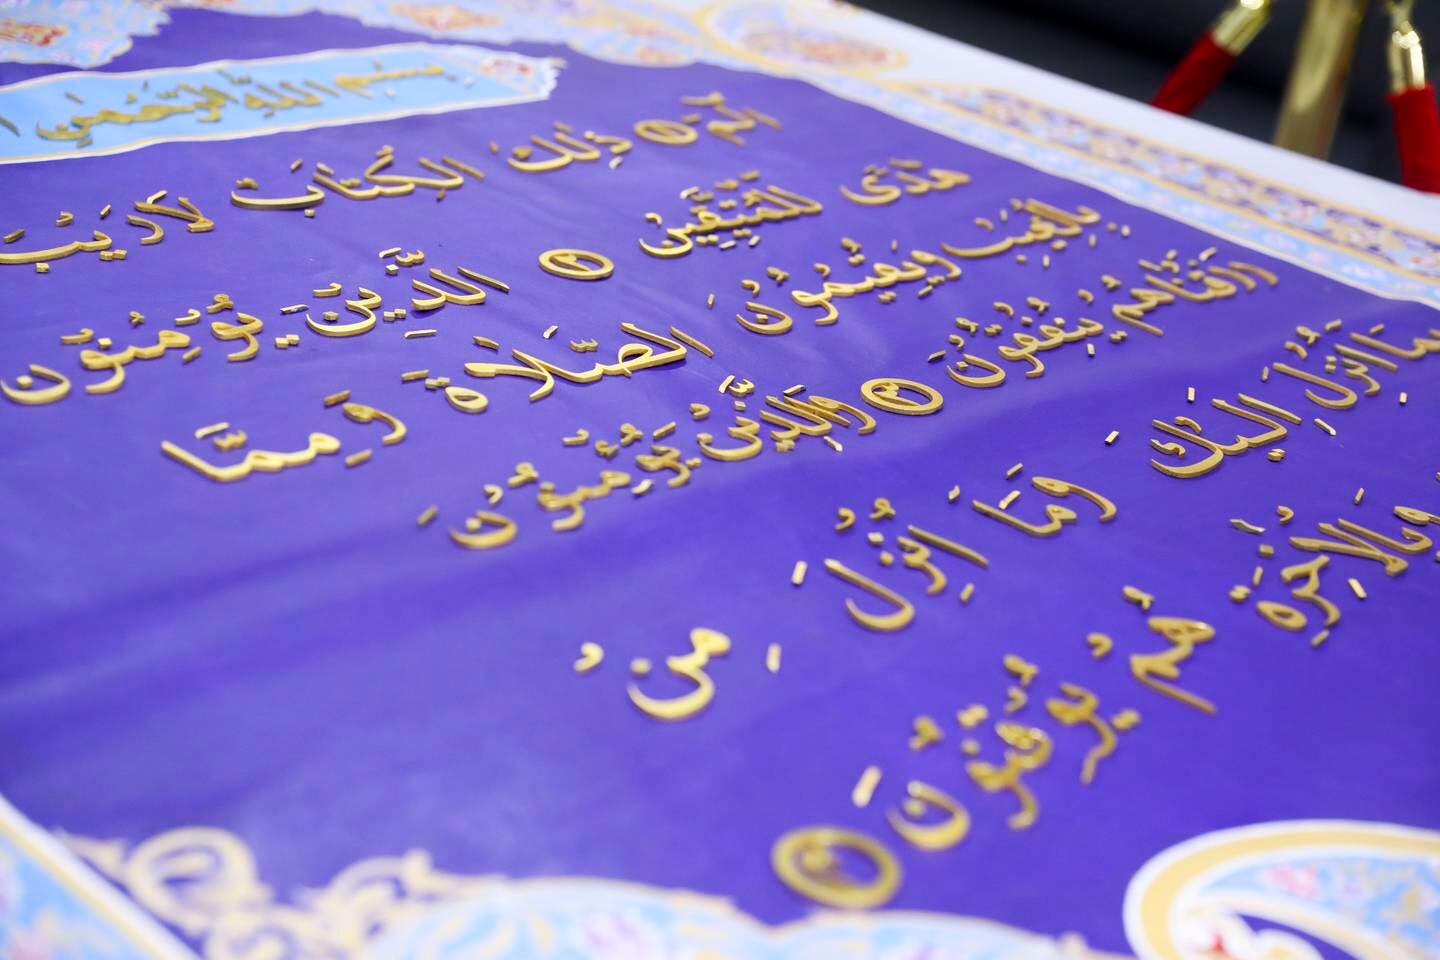 بِسْمِ اللَّهِ الرَّحْمَنِ
الٓمٓ ۝١ ذَٰلِكَ الْكِتَابُ لَا رَيْبَ
هُدًى لِلْمُتَّقِينَ ۝٢ الَّذِينَ يُؤْمِنُونَ
بِالْغَيْبِ وَيُقِيمُونَ الصَّلَاةَ وَمِمَّا
رَزَقْنَاهُمْ يُنْفِقُونَ ۝٣ وَالَّذِينَ يُؤْمِنُونَ
بِمَا أُنْزِلَ إِلَيْكَ وَمَا أُنْزِلَ مِنْ
وَبِالْآخِرَةِ هُمْ يُوقِنُونَ ۝٤